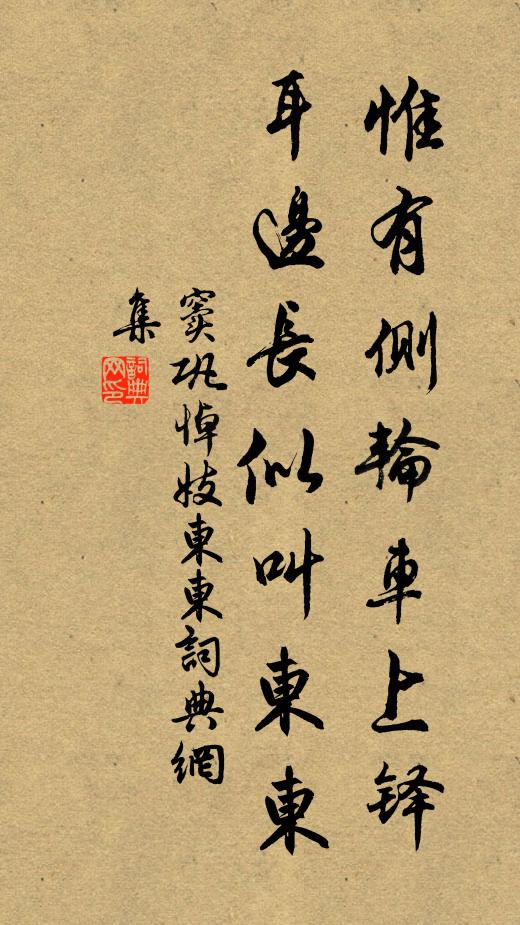 惟有側輪車上铎
耳邊長似叫東東
竇巩悼妓東東詞典網
集
詞典
网印